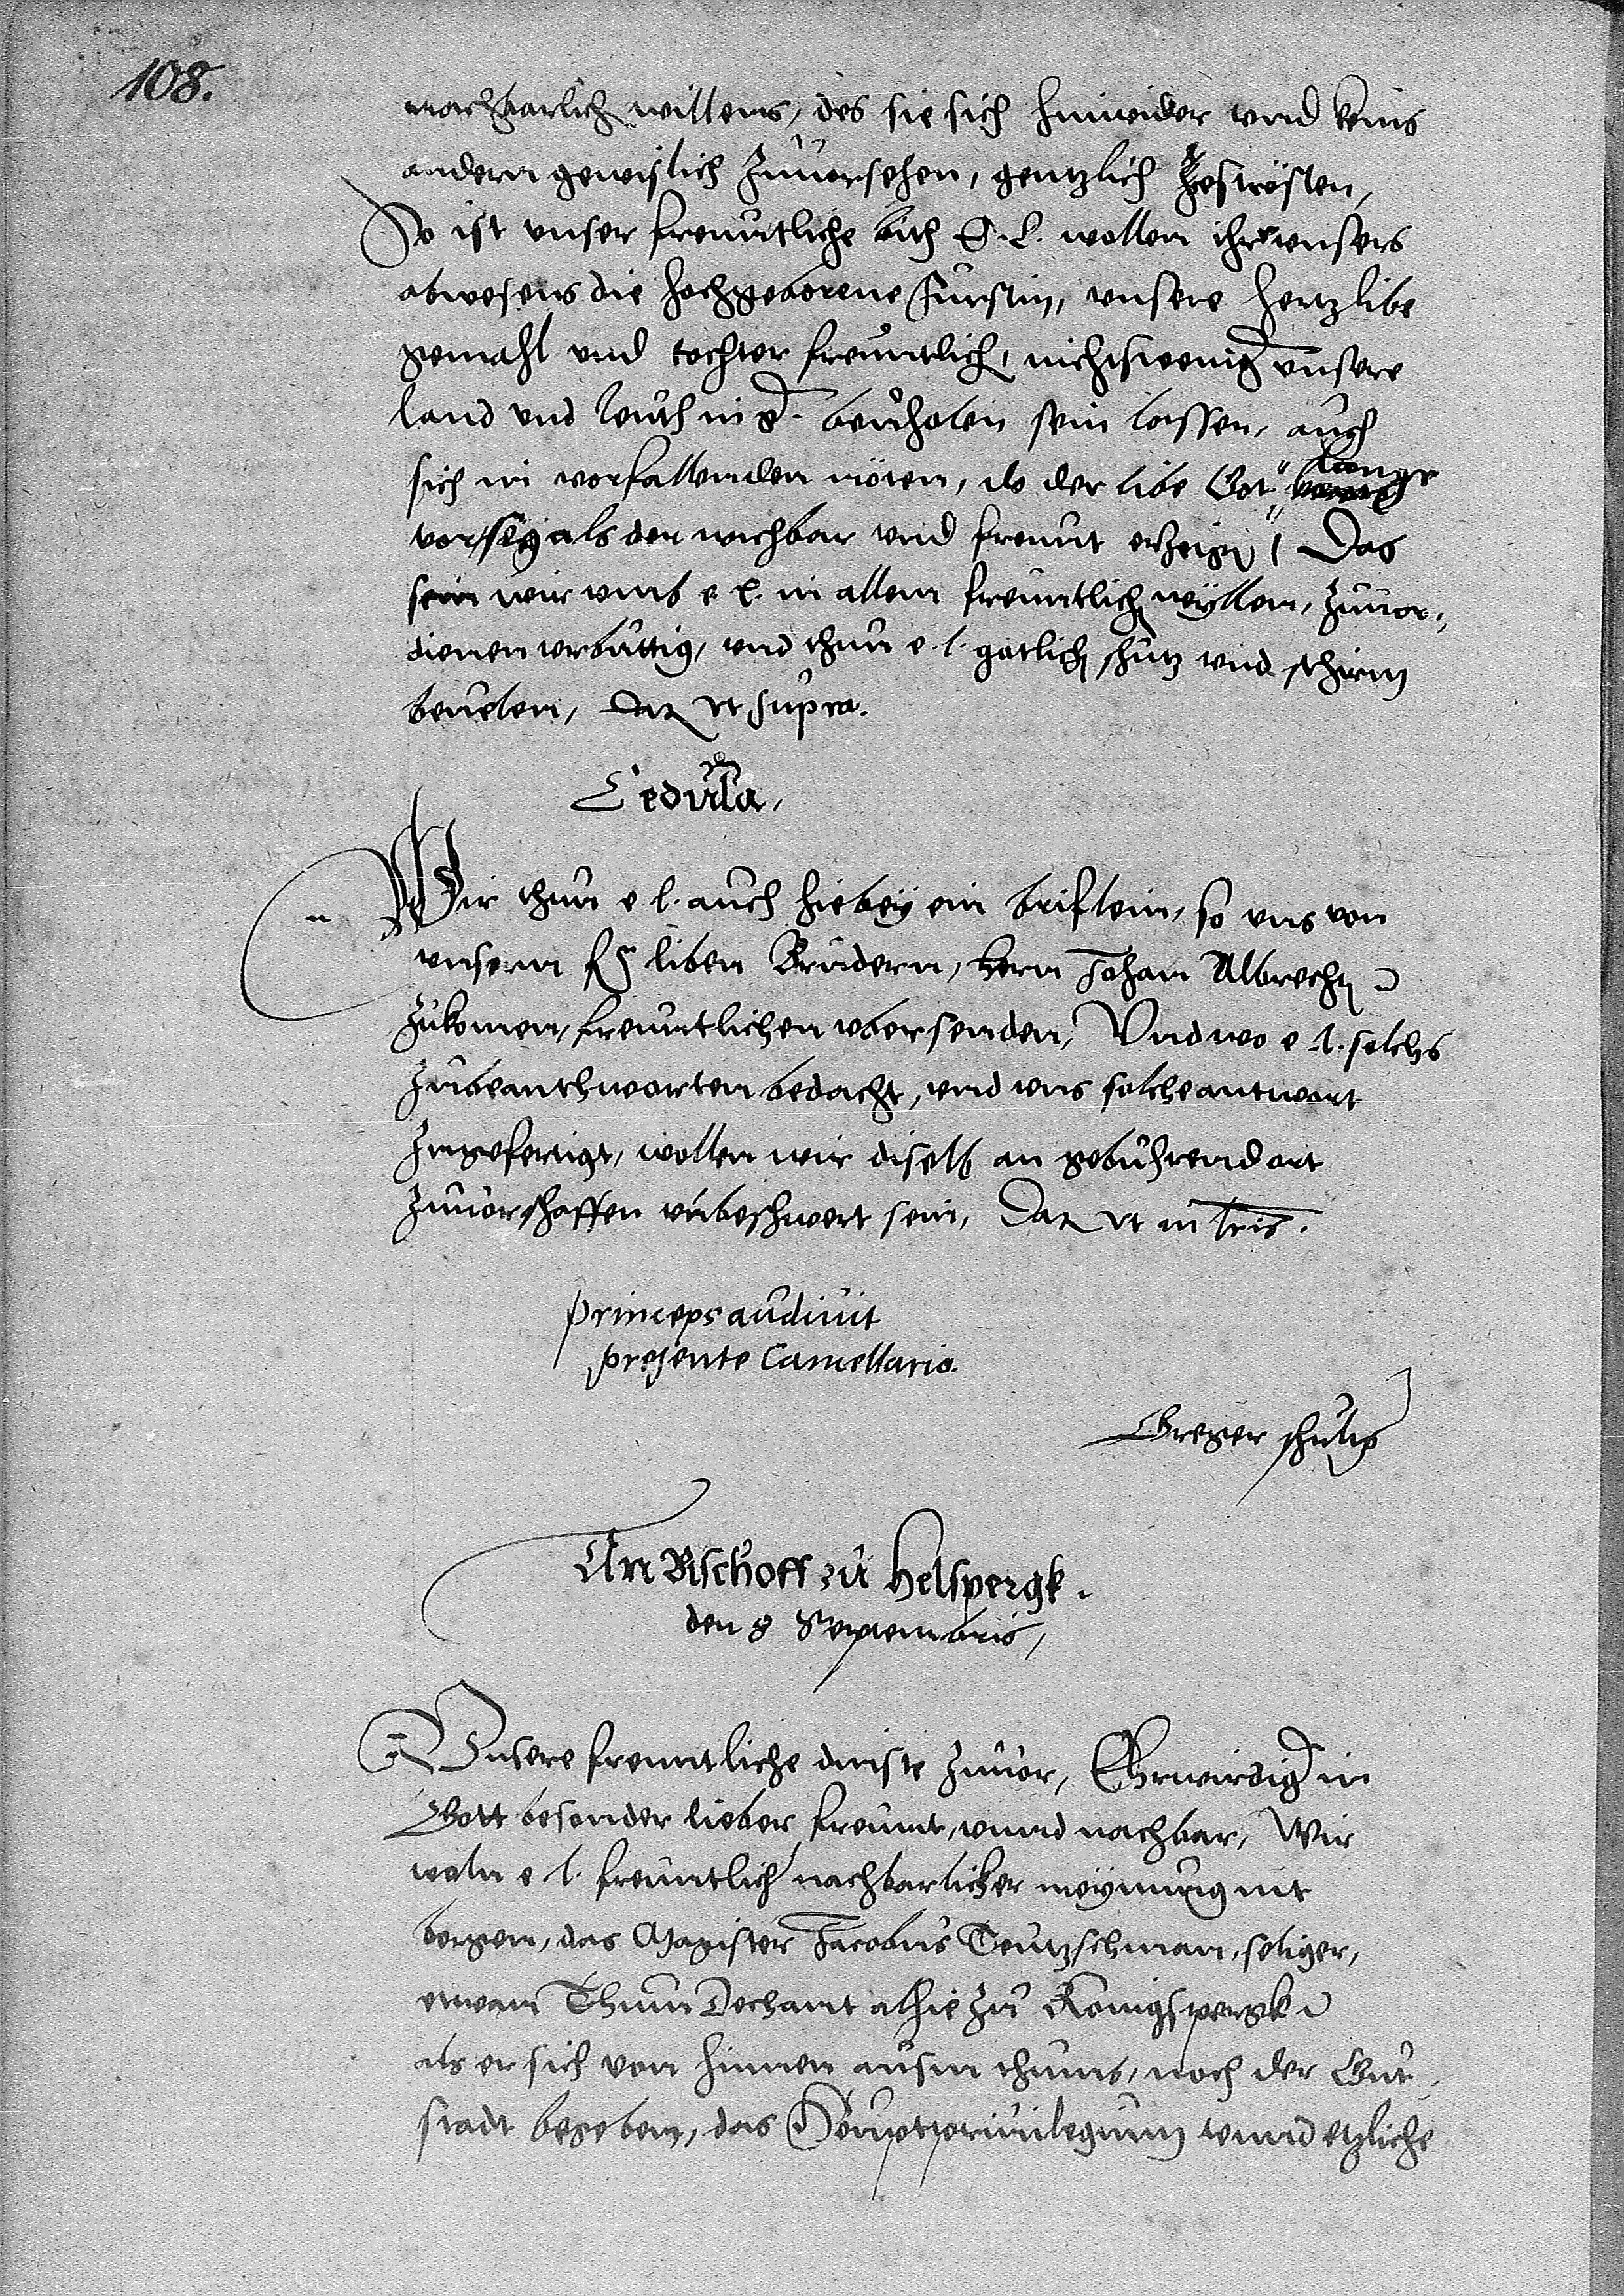 108.
nachbarlich willens, des sie sich hinwider vnd keins
andern gewislich zuuorsehen, gentzlich getrösten,
So ist vnser freuntliche bith E. L. wollen ihr vnsers
abwesens die hochgeborene furstin, vnsere hertz libe
gemahl vnd tochter freuntlich, nichtsweniger vnsere
land vnd leuth in beuholen sein lassen, auch
sich in vorfallenden nöten, do der libe Got lange
vor sey als der nachbar vnd freunt erzeigen Das
sein wir vmb e. l. in allem freuntlich wyllen, zuuor-
dienen vrbuttig, vnd thun e. l. gotlich schutz vnd schirm
beuelen, Dat vt supra.
Cedula,
Wir thun e l. auch hiebey ein briflein, so vns von
vnserm liben Brudern, hern Johan Albrecht
zukomen, freuntlichen vbersenden, Vnd wo e. l. solchs
zubeanthworten bedacht, vnd vns solche antwort
zugefertigt, wollen wir diselb an geburend ort
zuuorschaffen vnbeschwert sein, Dat vt in lris.
Princeps audiuit
presente Cancellario.
Greger schultz
An Bischoff zu Helspergk.
den 8 Septembris,
Vnsere freuntliche dinste zuuor, Ehrwirdig in
Gott besonder lieber freunt, vnnd nachbar, Wir
woln e l. freuntlich nachbarlicher meynung nit
bergen, das Magister Jacobus Teutzschman, seliger,
etwan Thum Dechant alhie zu Königspergk
als er sich von hinnen ausm thumb, noch der Gut-
stadt begeben, das Heuptpriuilegium vnnd etzliche